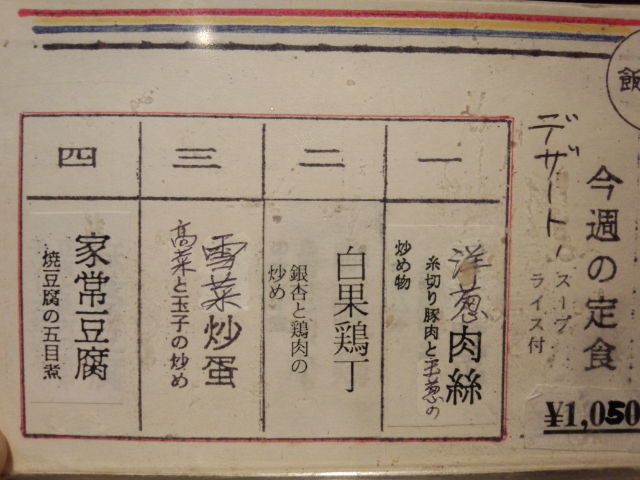 飯
今週の定食
デザート、スープ
ライス付
¥1,050
一
洋葱肉絲
糸切り豚肉と玉葱の
炒め物
二
白果鶏丁
銀杏と鶏肉の
炒め
三
雪菜炒蛋
高菜と玉子の炒め
四
家常豆腐
焼豆腐の五目煮